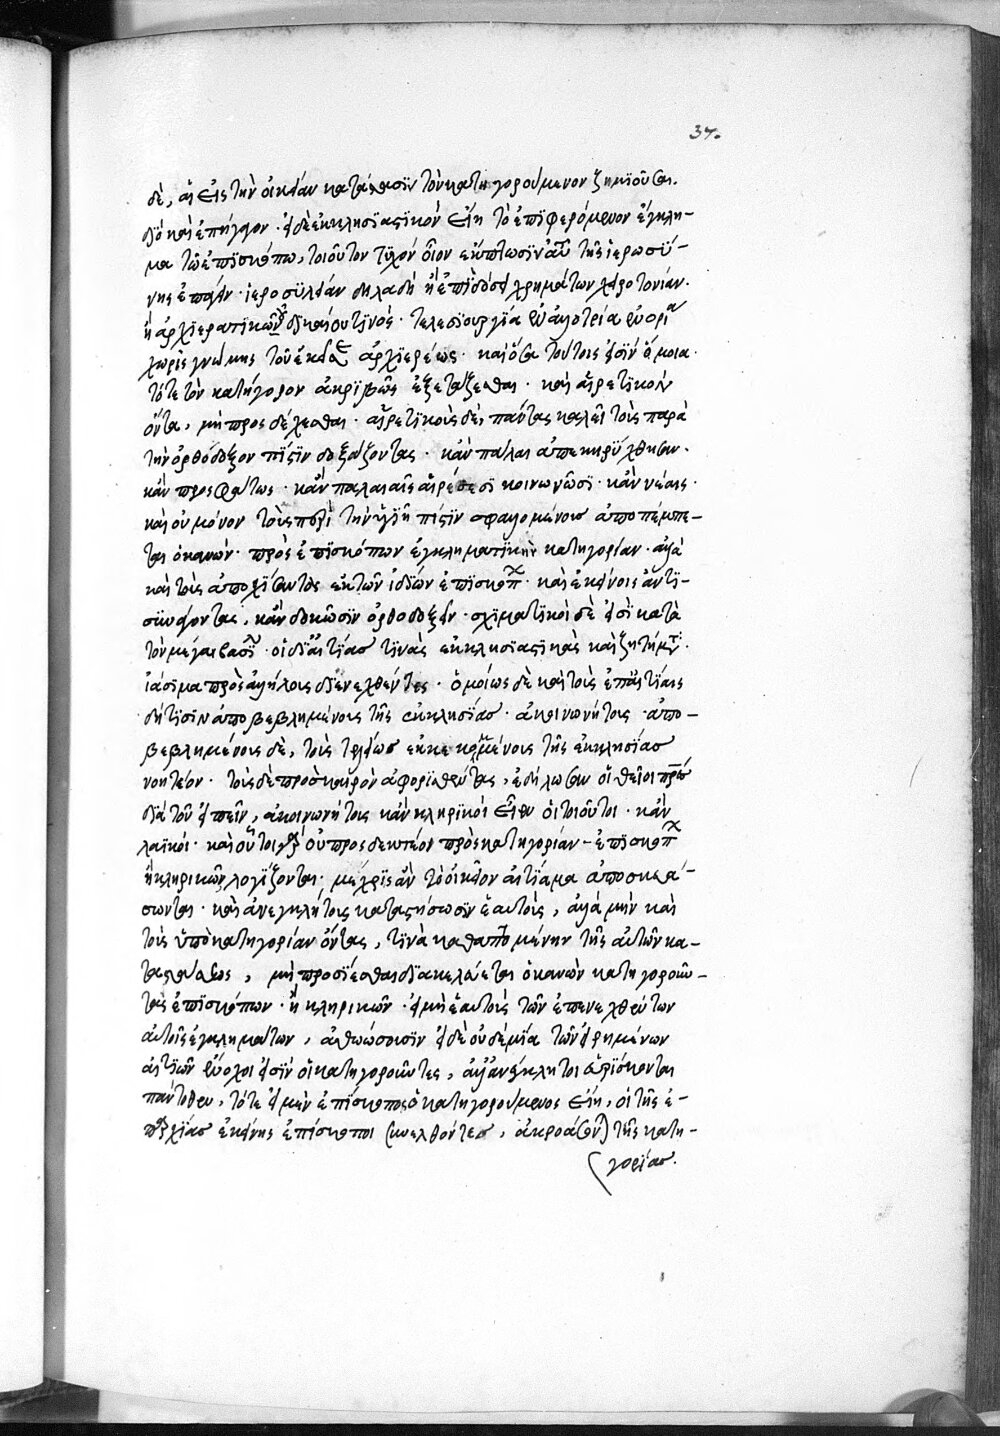 37.
δὲ, αἳ εἰς τὴν οἰκείαν κατάστασιν τὸν κατηγορούμενον ζημιοῦσαι.
διὸ καὶ ἐπήγαγον· εἰ δὲ ἐκκλησιαστικὸν εἴη τὸ ἐπιφερόμενον ἔγκλη-
μα τῷ ἐπισκόπῳ, τοιοῦτον τυχὸν οἷον ἔκπτωσιν αὐτῷ τῆς ἱερωσύ-
νης ἐπάγειν· ἱεροσυλίαν δηλαδὴ ἢ ἐπὶ δόσει χρημάτων χειροτονίαν·
ἢ ἀρχιερατικῶν δικαίου τινός· τελεσιουργία ἐν ἀλλοτρίᾳ ἐνορίᾳ
χωρὶς γνώμης τοῦ ἐκεῖσε ἀρχιερέως· καὶ ὅσα τούτοις εἰσὶν ὅμοια·
τότε τὸν κατήγορον ἀκριβῶς ἐξετάζεσθαι· καὶ αἱρετικὸν
ὄντα, μὴ προσδέχεσθαι· αἱρετικοὺς δὲ, πάντας καλεῖ τοὺς παρὰ
τὴν ὀρθόδοξον πίστιν δοξάζοντας· κἂν πάλαι ἀπεκηρύχθησαν·
κἂν προσφάτως· κἂν παλαιαῖς αἱρέσεσι κοινωνῶσι· κἂν νέαις·
καὶ οὐ μόνον τοὺς περὶ τὴν ὑγιῆ πίστιν σφαλλομένους ἀποπέμπε-
ται ὁ κανὼν· πρὸς ἐπισκόπων ἐγκληματικὴν κατηγορίαν· ἀλλὰ
καὶ τοὺς ἀποσχίσαντας ἐκ τῶν ἰδίων ἐπισκόπων· καὶ ἐκείνοις ἀντι-
συνάγοντας, κἂν δοκῶσιν ὀρθοδοξεῖν· σχισματικοὶ δὲ εἰσὶ κατὰ
τὸν μέγαν βασίλειον· οἱ δι' αἰτίας τινὰς ἐκκλησιαστικὰς καὶ ζητήματα·
ἰάσιμα πρὸς ἀλλήλους διενεχθέντες· ὁμοίως δὲ καὶ τοὺς ἐπ' αἰτίαις
δή τισιν ἀποβεβλημένους τῆς ἐκκλησίας· ἀκοινωνήτους· ἀπο-
βεβλημένους δὲ, τοὺς τελείως ἐκκεκομμένους τῆς ἐκκλησίας
νοητέον· τοὺς δὲ πρὸς καιρὸν ἀφορισθέντας, ἐδήλωσαν οἱ θεῖοι πατέρες
διὰ τοῦ εἰπεῖν, ἀκοινωνήτους κἂν κληρικοὶ εἶεν οἱ τοιοῦτοι· κἂν
λαϊκοί· καὶ οὗτοι γὰρ οὐ προσδεκτέοι πρὸς κατηγορίαν ἐπισκόπων
ἢ κληρικῶν λογίζονται· μέχρις ἂν τὸ οἰκεῖον αἰτίαμα ἀποσκευά-
σωνται· καὶ ἀνεγκλήτους καταστήσωσιν ἑαυτοὺς, ἀλλὰ μὴν καὶ
τοὺς ὑπὸ κατηγορίαν ὄντας, τινὰ καθαπτομένην τῆς αὐτῶν κα-
ταστάσεως, μὴ προσίεσθαι διακελεύεται ὁ κανὼν κατηγοροῦν-
τας ἐπισκόπων· ἢ κληρικῶν· εἰ μὴ ἑαυτοὺς τῶν ἐπενεχθέντων
αὐτοῖς ἐγκλημάτων, ἀθωώσουσιν εἰ δὲ οὐδεμία τῶν εἰρημένων
αἰτιῶν ἔνοχοί εἰσιν οἱ κατηγοροῦντες, ἀλλ' ἀνέγκλητοι εὑρίσκονται
πάντοθεν, τότε εἰ μὲν ἐπίσκοπος ὁ κατηγορούμενος εἴη, οἱ τῆς ἐ-
παρχίας ἐκείνης ἐπίσκοποι συνελθόντες, ἀκροάσονται τῆς κατη-
γορίας.